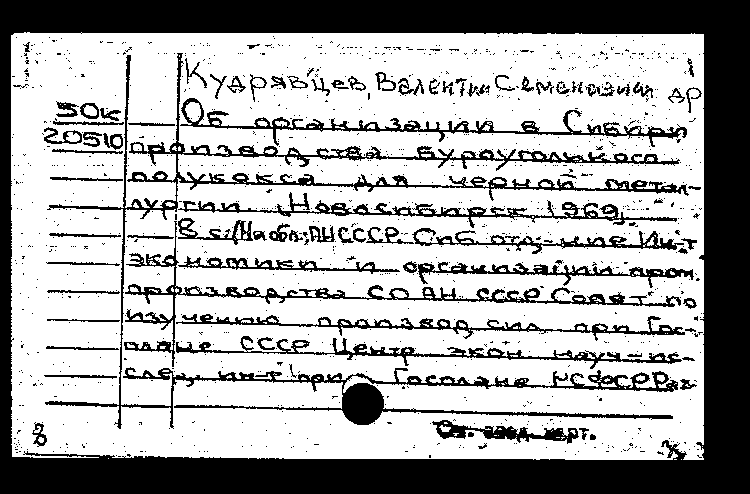 Кудрявцев, Валентин Семенович др
50к Об организации в Сибири
20510 производства буроугольного
полукокса для черной метал-
лургии. Новосибирск, 1969.
8 с. (На обл.: АН СССР. Сиб. отд-ние. Ин-т
экономики и организации пром.
производства СО АН СССР Совет по
изучению производ. сил при Гос-
плане СССР Центр экон. науч-ис-
след. ин-т при Госплане РСФСР
8 См. след. карт.